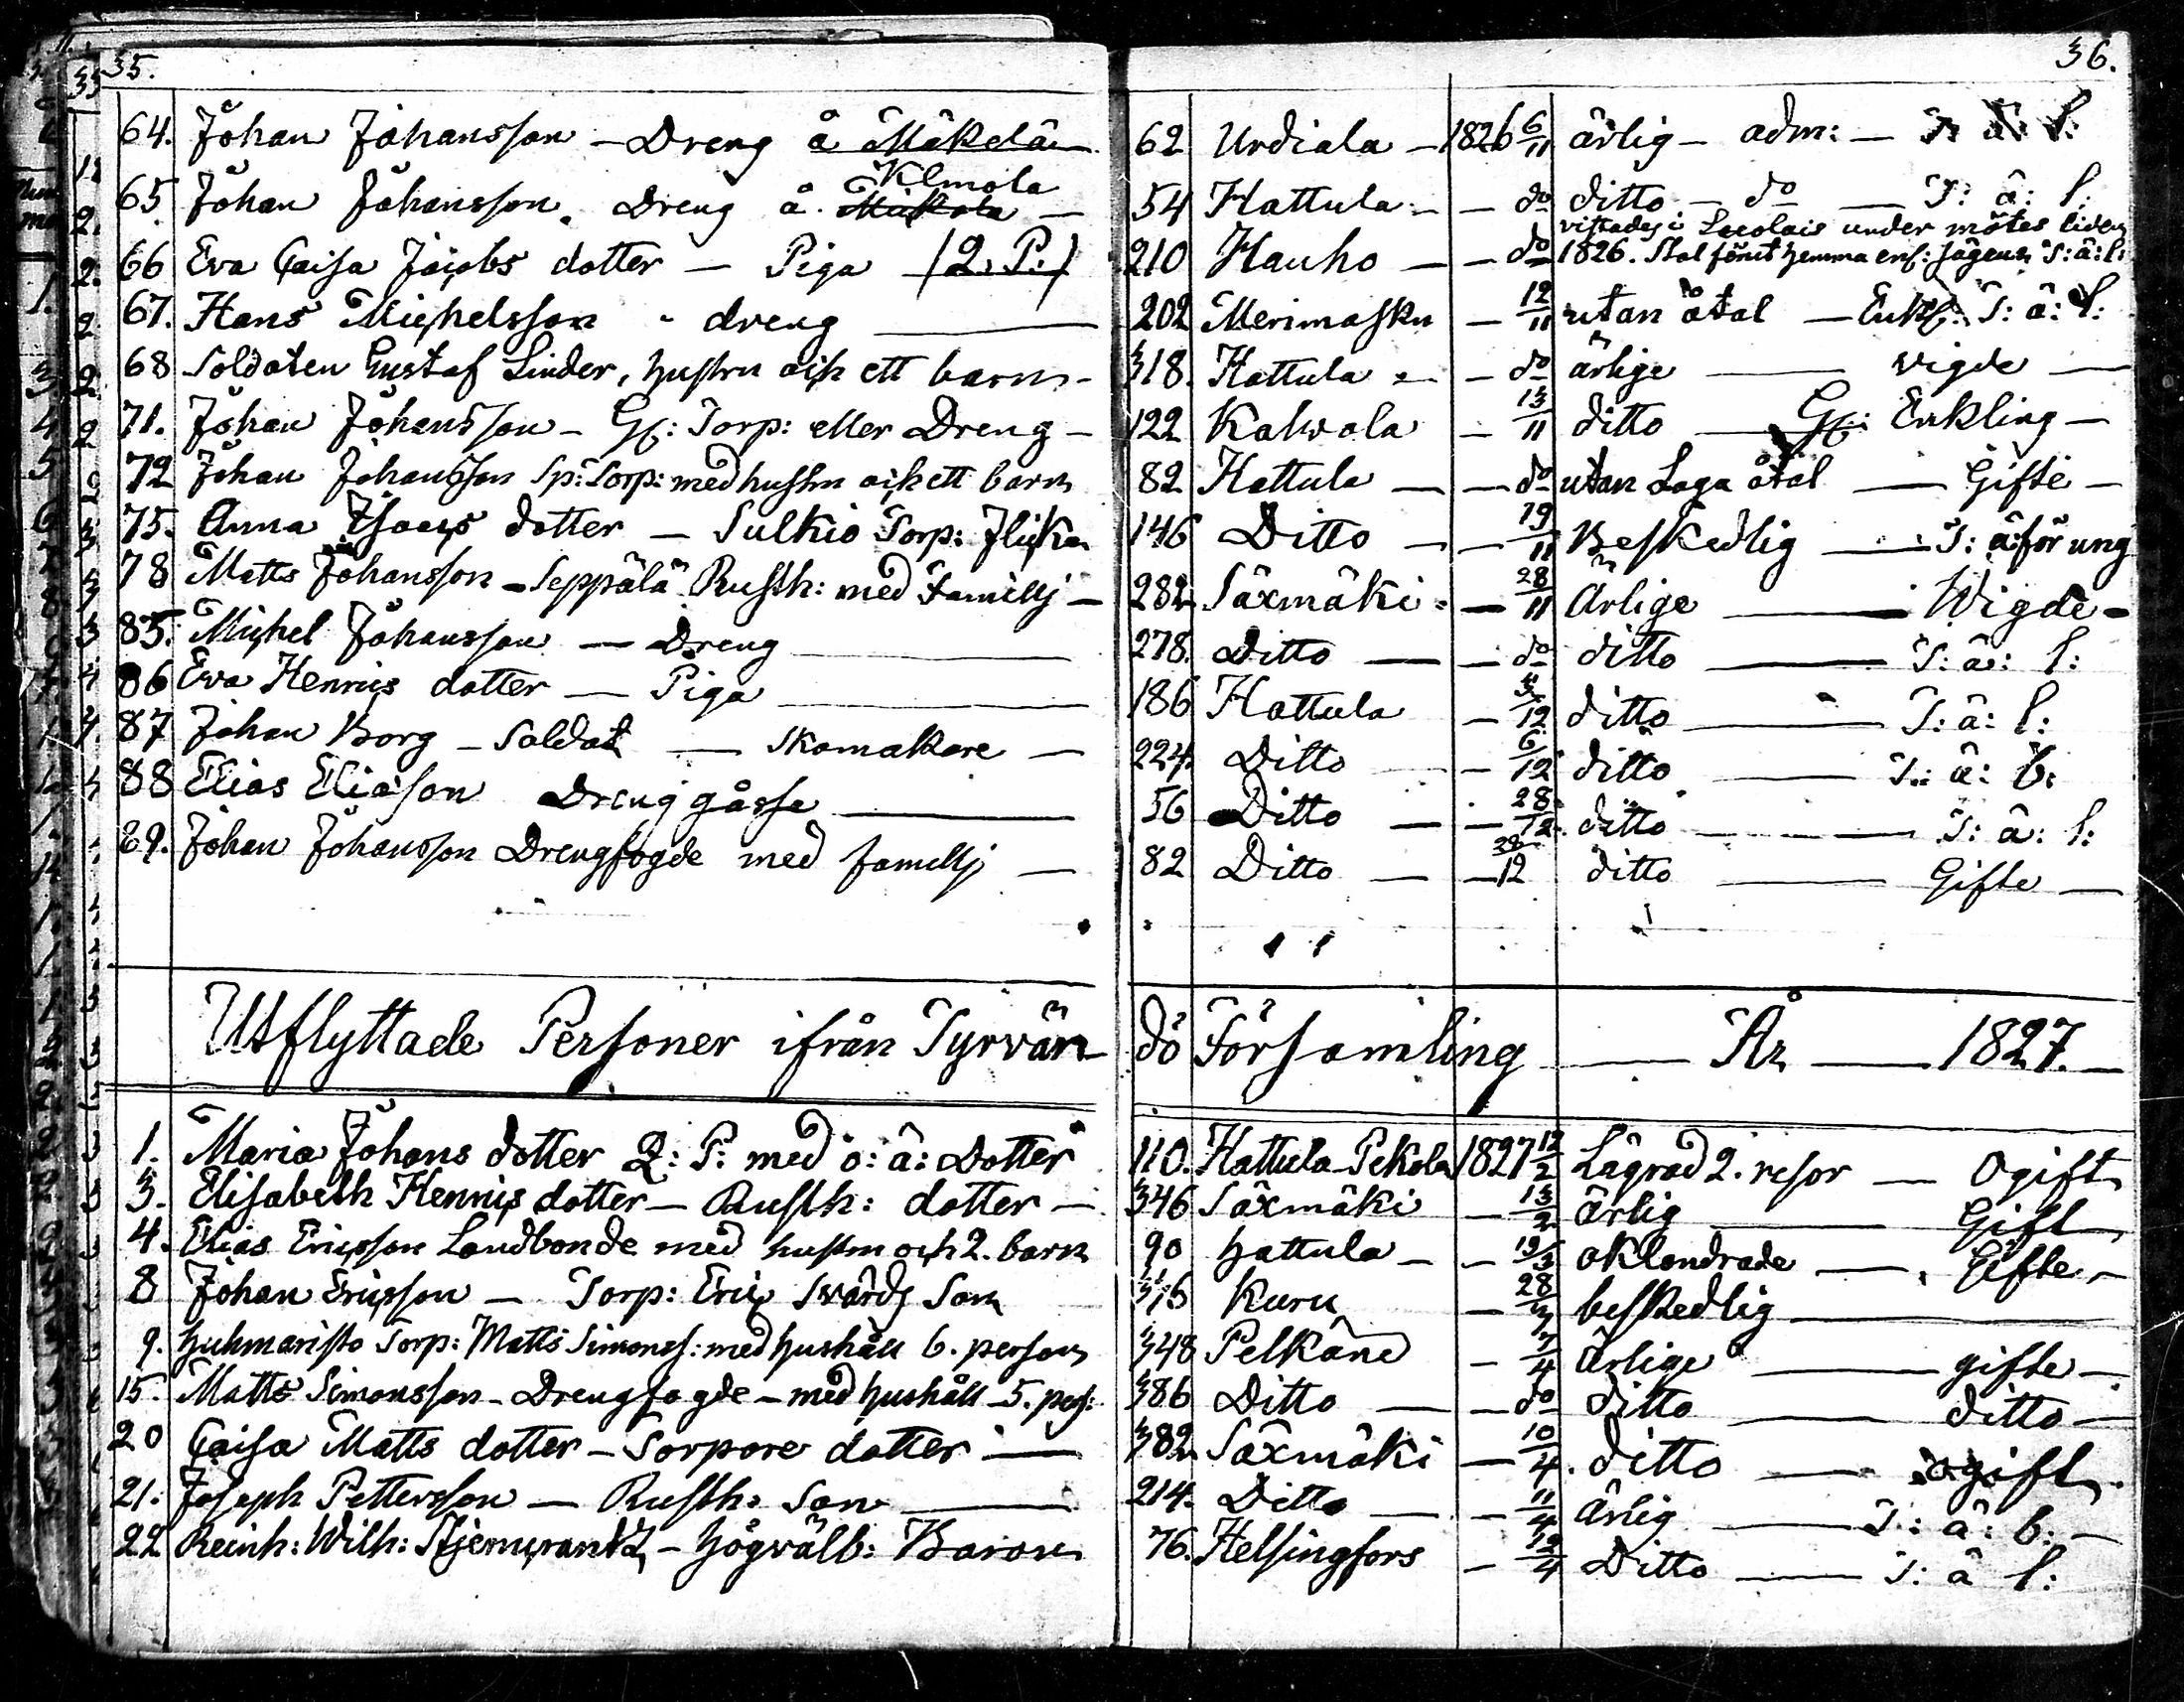 35.
36.
64. Johan Johansson - Dreng å Mäkelä 62 Urdiala - 1826 6/11 ärlig - adm: - T: ä: l:
Klmola
65 Johan Johansson. Dreng å - 54 Hattula - - do ditto - do - T: ä: l:
vistades i under mötes tiden
66 Eva Caisa Jacobs dotter - Piga (2. P:) 210 Hauho - - do 1826. Skal förut hemma enl: sägens T: ä: l:
67. Hans Michelsson - dreng - 202 Merimasku - 12/11 utan åtal - Enkl: T: ä: l:
68 Soldaten Gustaf Linder, hustru och ett barn - 318. Hattula - - do ärlige - vigde -
71. Johan Johansson - Gl: Torp: eller Dreng - 122 Kalvola - 13/11 ditto - Gl: Enkling -
72 Johan Johansson Sp: Torp: med hustru och ett barn 82 Hattula - - do utan Laga åtal - Gifte -
75. Anna Isacs dotter - Sulkio Torp: flicka 146 Ditto - - 19/11 Beskedlig - T: ä: för ung
78 Matts Johansson - Seppälä Rusth: med Familj - 282 Säxmäki - - 28/11 Ärlige - Wigde -
85. Michel Johansson - Dreng - 278. Ditto - - do ditto - T: ä: l:
86 Eva Henrics dotter - Piga - 186 Hattula - 3/12 ditto - T: ä: l:
87 Johan Borg - Soldat - Skomakare - 224. Ditto - - 6/12 ditto - T: ä: b:
88 Elias Eliason Drenggåsse - 56 Ditto - - 28/12. ditto - T: ä: l:
89. Johan Johansson Drengfogde med familj - 82 Ditto - - 28/12 ditto - Gifte -
Utflyttade Personer ifrån Tyrvän dö Församling - År - 1827. -
1. Maria Johans dotter Q: P: med o: ä: Dotter 110. Hattula Pekola 1827 12/2 Lägrad 2. resor - Ogift
3. Elisabeth Henrics dotter - Rusth: dotter - 346 Säxmäki - 13/2 ärlig - Gift
4. Elias Ericsson Landbonde med hustru och 2. barn 90 Hattula - - 19/3 oklandrade - Gifte -
8 Johan Ericsson - Torp: Eric Svärds Son Kuru - 28/3 beskedlig -
9. Huhmaristo Torp: Matts Simonss: med hushåll 6. person 348 Pelkäne - 7/4 Ärlige - gifte -
15. Matts Simonsson - Drengfogde - med hushåll - 5. pers: 386 Ditto - - do ditto - ditto -
20 Caisa Matts dotter - Torpare dotter - 382 Säxmäki - 10/4. ditto - ogift
21. Joseph Pettersson - Rusth: Son - 214. Ditto - - 11/4 Ärlig - T: ä: b: -
22 Reinh: Wilh: Stjerncrantz - Högvälb: Baron 76. Helsingfors - 12/4 Ditto - T: ä l: